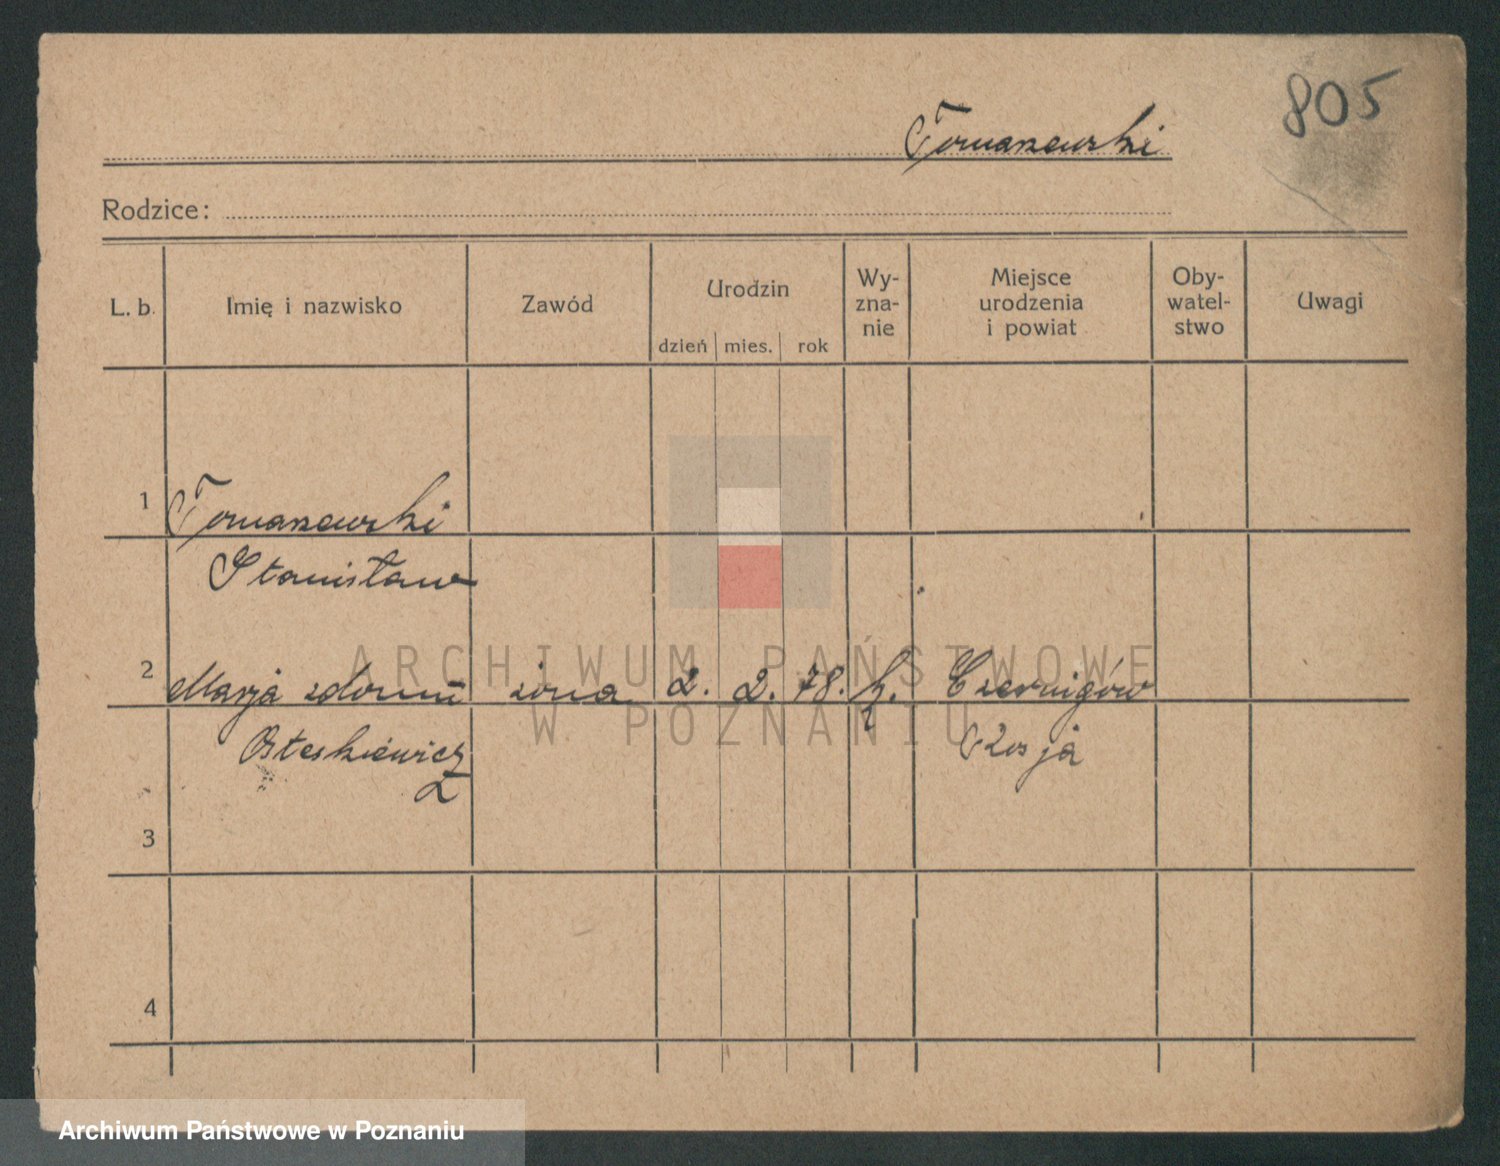 805
Tomaszewski
Rodzice:
L. b. Imię i nazwisko Zawód Urodzin dzień mies. rok Wy-zna-nie Miejsce urodzenia i powiat Oby-watel-stwo Uwagi
1 Tomaszewski
Stanisław
ARCHIWUM PAŃSTWOWE
2 Marja zdomu żona 2. 2. 78. k. Czernigów
W POZNANIU
Rosja
3
4
Archiwum Państwowe w Poznaniu